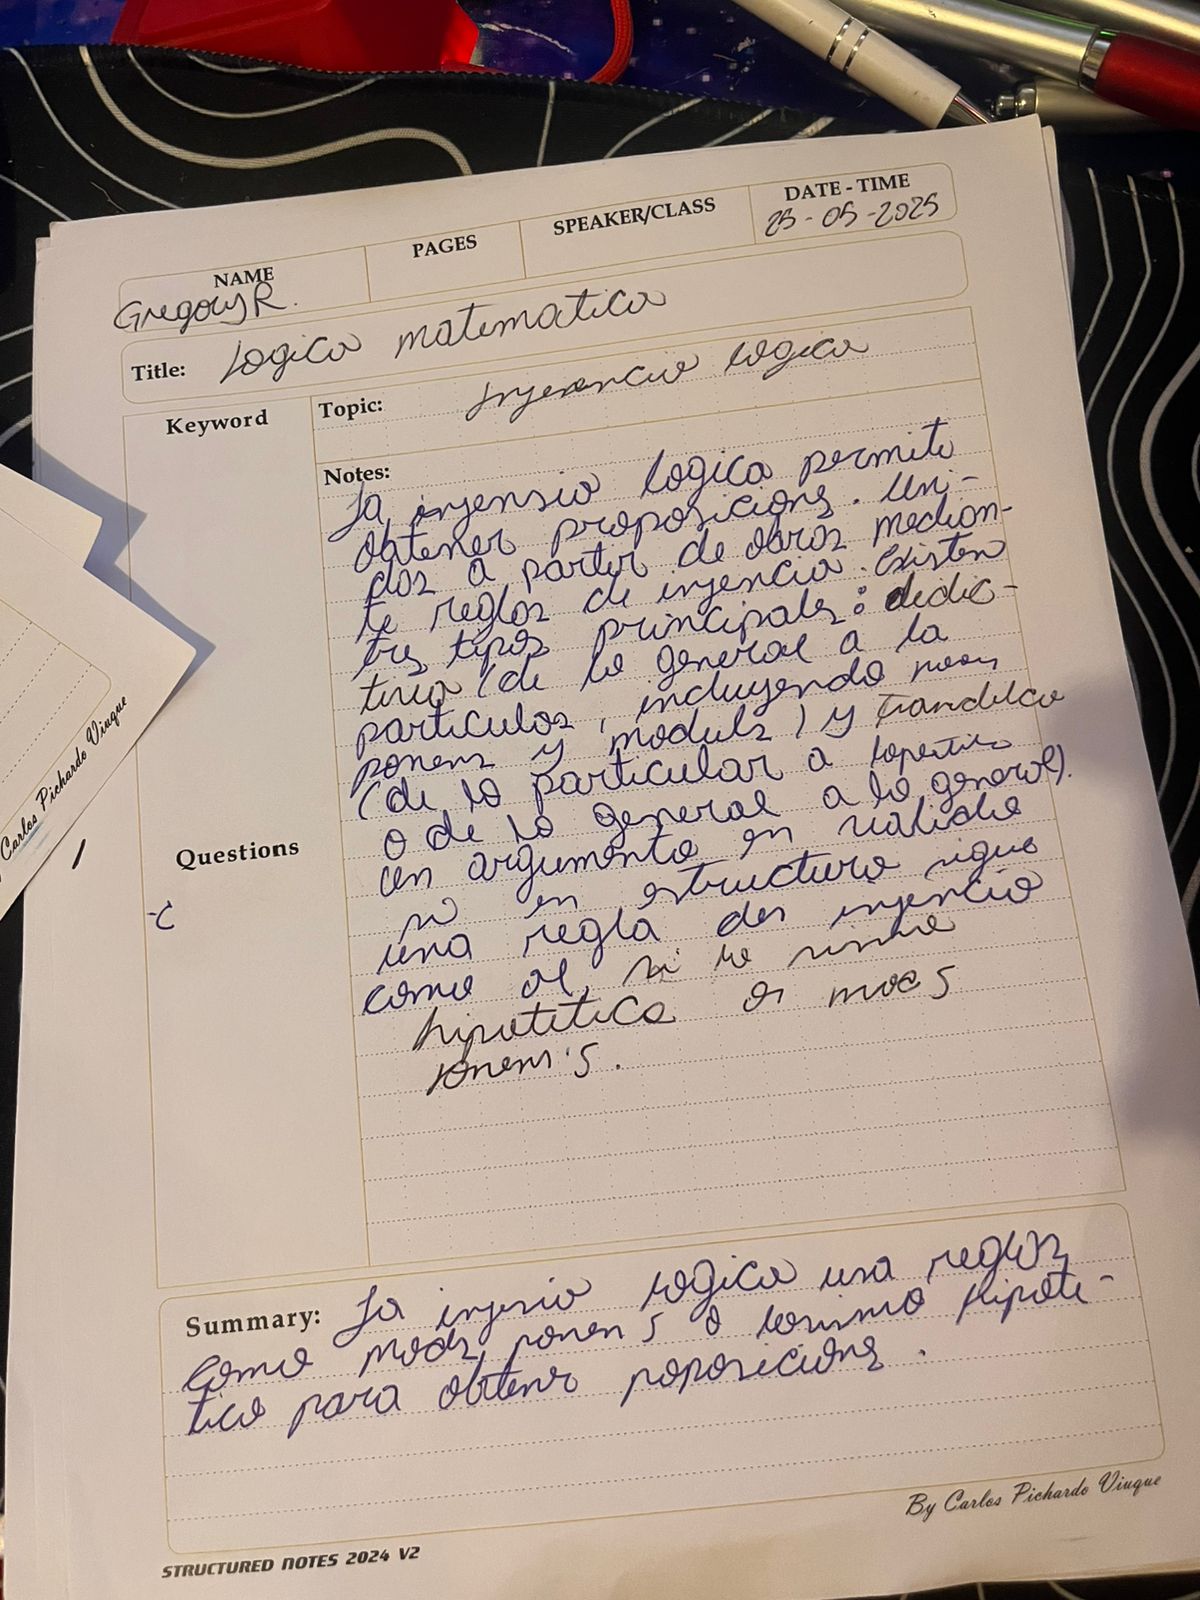 NAME
Gregory R.
PAGES
SPEAKER/CLASS
DATE - TIME
25-05-2025
Title: Logica matematica
Keyword
Topic: Inferencia logica
Notes:
La injensio logica permite
obtener proposiciones. Uni-
dos a partir de otros median-
te reglas de injencia. Existen
tres tipos principales: dedic-
tiva (de lo general a la
particulos, incluyendo
ponens y moduls) y
(de lo particular a
o de lo general a lo general).
un argumento en valido
si en estructura sigue
una regla des injencia
como el, si
hipotetica
ponens.
Questions
Summary: La injesio logica usa reglas
como mods ponens o hipote-
tico para obtener poposiciones.
By Carlos Pichardo Viuque
STRUCTURED NOTES 2024 V2
Carlos Pichardo Viuque